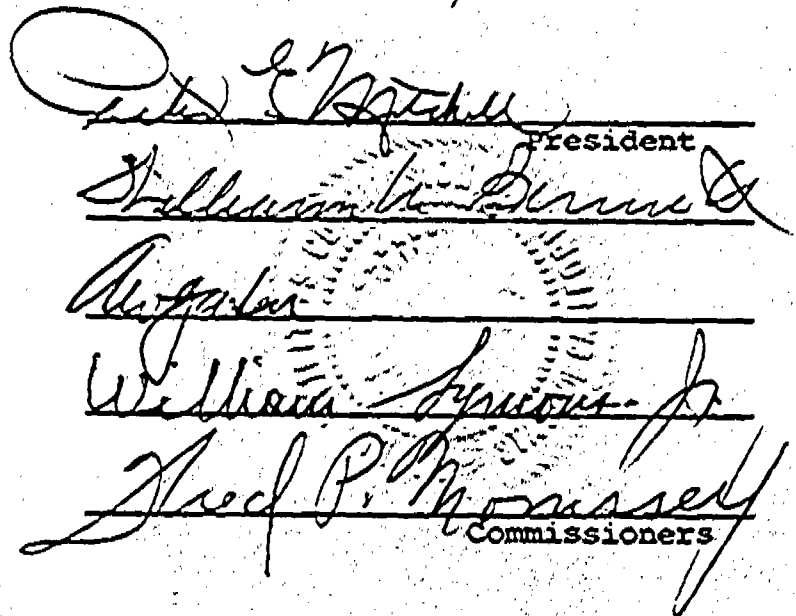 Peter E Mitchell
President
William M. Bennett
A. W. Gatov
William Symons Jr.
Fred P. Morrissey
Commissioners